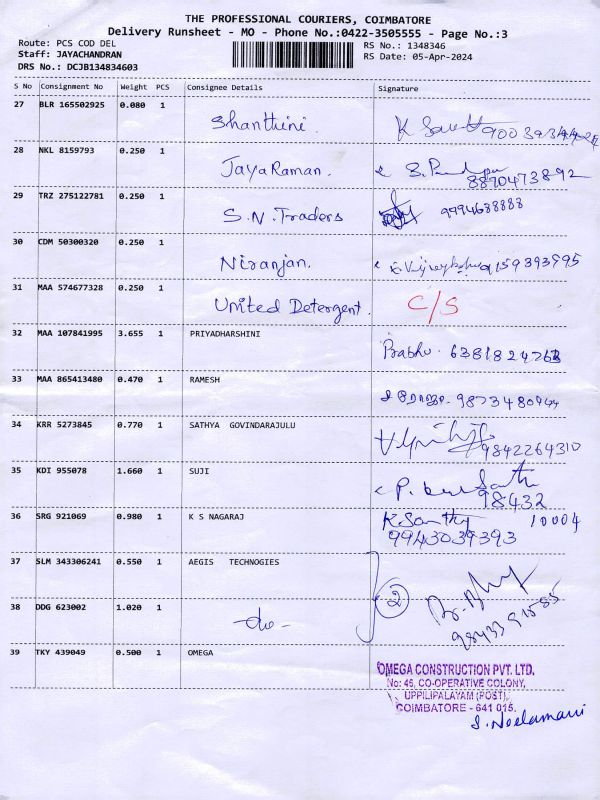 THE PROFESSIONAL COURIERS, COIMBATORE
Delivery Runsheet - MO - Phone No.:0422-3505555 - Page No.:3
Route: PCS COD DEL
RS No.: 1348346
Staff: JAYACHANDRAN
RS Date: 05-Apr-2024
DRS No.: DCJB134834603
S No Consignment No Weight PCS Consignee Details Signature
27 BLR 165502925 0.080 1 Shanthini.
28 NKL 8159793 0.250 1 JayaRaman. 8870473892
29 TRZ 275122781 0.250 1 S.N. Traders 9994688888
30 CDM 50300320 0.250 1 Niranjan. 9159393995
31 MAA 574677328 0.250 1 United Detergent. C/S
32 MAA 107841995 3.655 1 PRIYADHARSHINI Prabhu
33 MAA 865413480 0.470 1 RAMESH
34 KRR 5273845 0.770 1 SATHYA GOVINDARAJULU 9842264310
35 KDI 955078 1.660 1 SUJI 98432
36 SRG 921069 0.980 1 K S NAGARAJ K Santhy 10004
9943039393
37 SLM 343306241 0.550 1 AEGIS TECHNOGIES
2
38 DDG 623002 1.020 1 -do-
39 TKY 439049 0.500 1 OMEGA
OMEGA CONSTRUCTION PVT. LTD.
No: 45, CO-OPERATIVE COLONY,
UPPILIPALAYAM (POST),
COIMBATORE - 641 015.
S. Neelamani